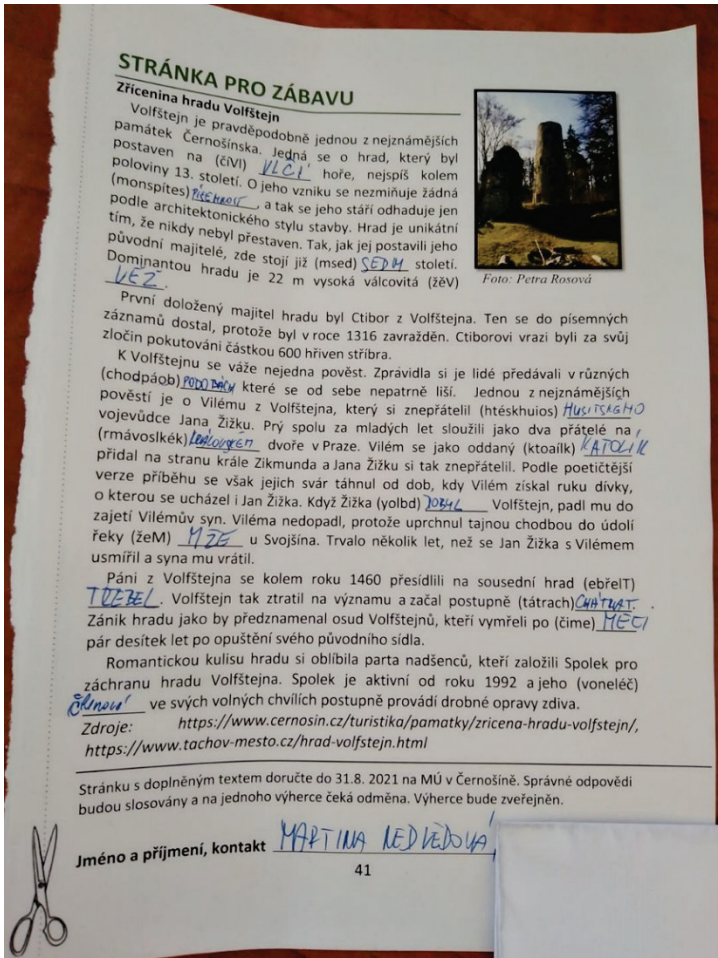 STRÁNKA PRO ZÁBAVU
Zřícenina hradu Volfštejn
Volfštejn je pravděpodobně jednou z nejznámějších
památek Černošínska. Jedná se o hrad, který byl
postaven na (čiVl) VLČÍ hoře, nejspíš kolem
poloviny 13. století. O jeho vzniku se nezmiňuje žádná
(monspítes) PÍSEMNOST, a tak se jeho stáří odhaduje jen
podle architektonického stylu stavby. Hrad je unikátní
tím, že nikdy nebyl přestaven. Tak, jak jej postavili jeho
původní majitelé, zde stojí již (msed) SEDM století.
Dominantou hradu je 22 m vysoká válcovitá (žěV)
VĚŽ.
Foto: Petra Rosová
První doložený majitel hradu byl Ctibor z Volfštejna. Ten se do písemných
záznamů dostal, protože byl v roce 1316 zavražděn. Ctiborovi vrazi byli za svůj
zločin pokutováni částkou 600 hřiven stříbra.
K Volfštejnu se váže nejedna pověst. Zpravidla si je lidé předávali v různých
(chodpáob) PODOBÁCH které se od sebe nepatrně liší. Jednou z nejznámějších
pověstí je o Vilému z Volfštejna, který si znepřátelil (htéskhuios) HUSITSKÉHO
vojevůdce Jana Žižku. Prý spolu za mladých let sloužili jako dva přátelé na
(rmávoslkék) KRÁLOVSKÉM dvoře v Praze. Vilém se jako oddaný (ktoaílk) KATOLÍK
přidal na stranu krále Zikmunda a Jana Žižku si tak znepřátelil. Podle poetičtější
verze příběhu se však jejich svár táhnul od dob, kdy Vilém získal ruku dívky,
o kterou se ucházel i Jan Žižka. Když Žižka (yolbd) DOBYL Volfštejn, padl mu do
zajetí Vilémův syn. Viléma nedopadl, protože uprchnul tajnou chodbou do údolí
řeky (žeM) MŽE u Svojšína. Trvalo několik let, než se Jan Žižka s Vilémem
usmířil a syna mu vrátil.
Páni z Volfštejna se kolem roku 1460 přesídlili na sousední hrad (ebřelT)
TŘEBEL. Volfštejn tak ztratil na významu a začal postupně (tátrach) CHÁTRAT.
Zánik hradu jako by předznamenal osud Volfštejnů, kteří vymřeli po (čime) MEČI
pár desítek let po opuštění svého původního sídla.
Romantickou kulisu hradu si oblíbila parta nadšenců, kteří založili Spolek pro
záchranu hradu Volfštejna. Spolek je aktivní od roku 1992 a jeho (voneléč)
ve svých volných chvílích postupně provádí drobné opravy zdiva.
Zdroje: https://www.cernosin.cz/turistika/pamatky/zricena-hradu-volfstejn/,
https://www.tachov-mesto.cz/hrad-volfstejn.html
Stránku s doplněným textem doručte do 31.8. 2021 na MÚ v Černošíně. Správné odpovědi
budou slosovány a na jednoho výherce čeká odměna. Výherce bude zveřejněn.
Jméno a příjmení, kontakt MARTINA NEDVĚDOVÁ
41